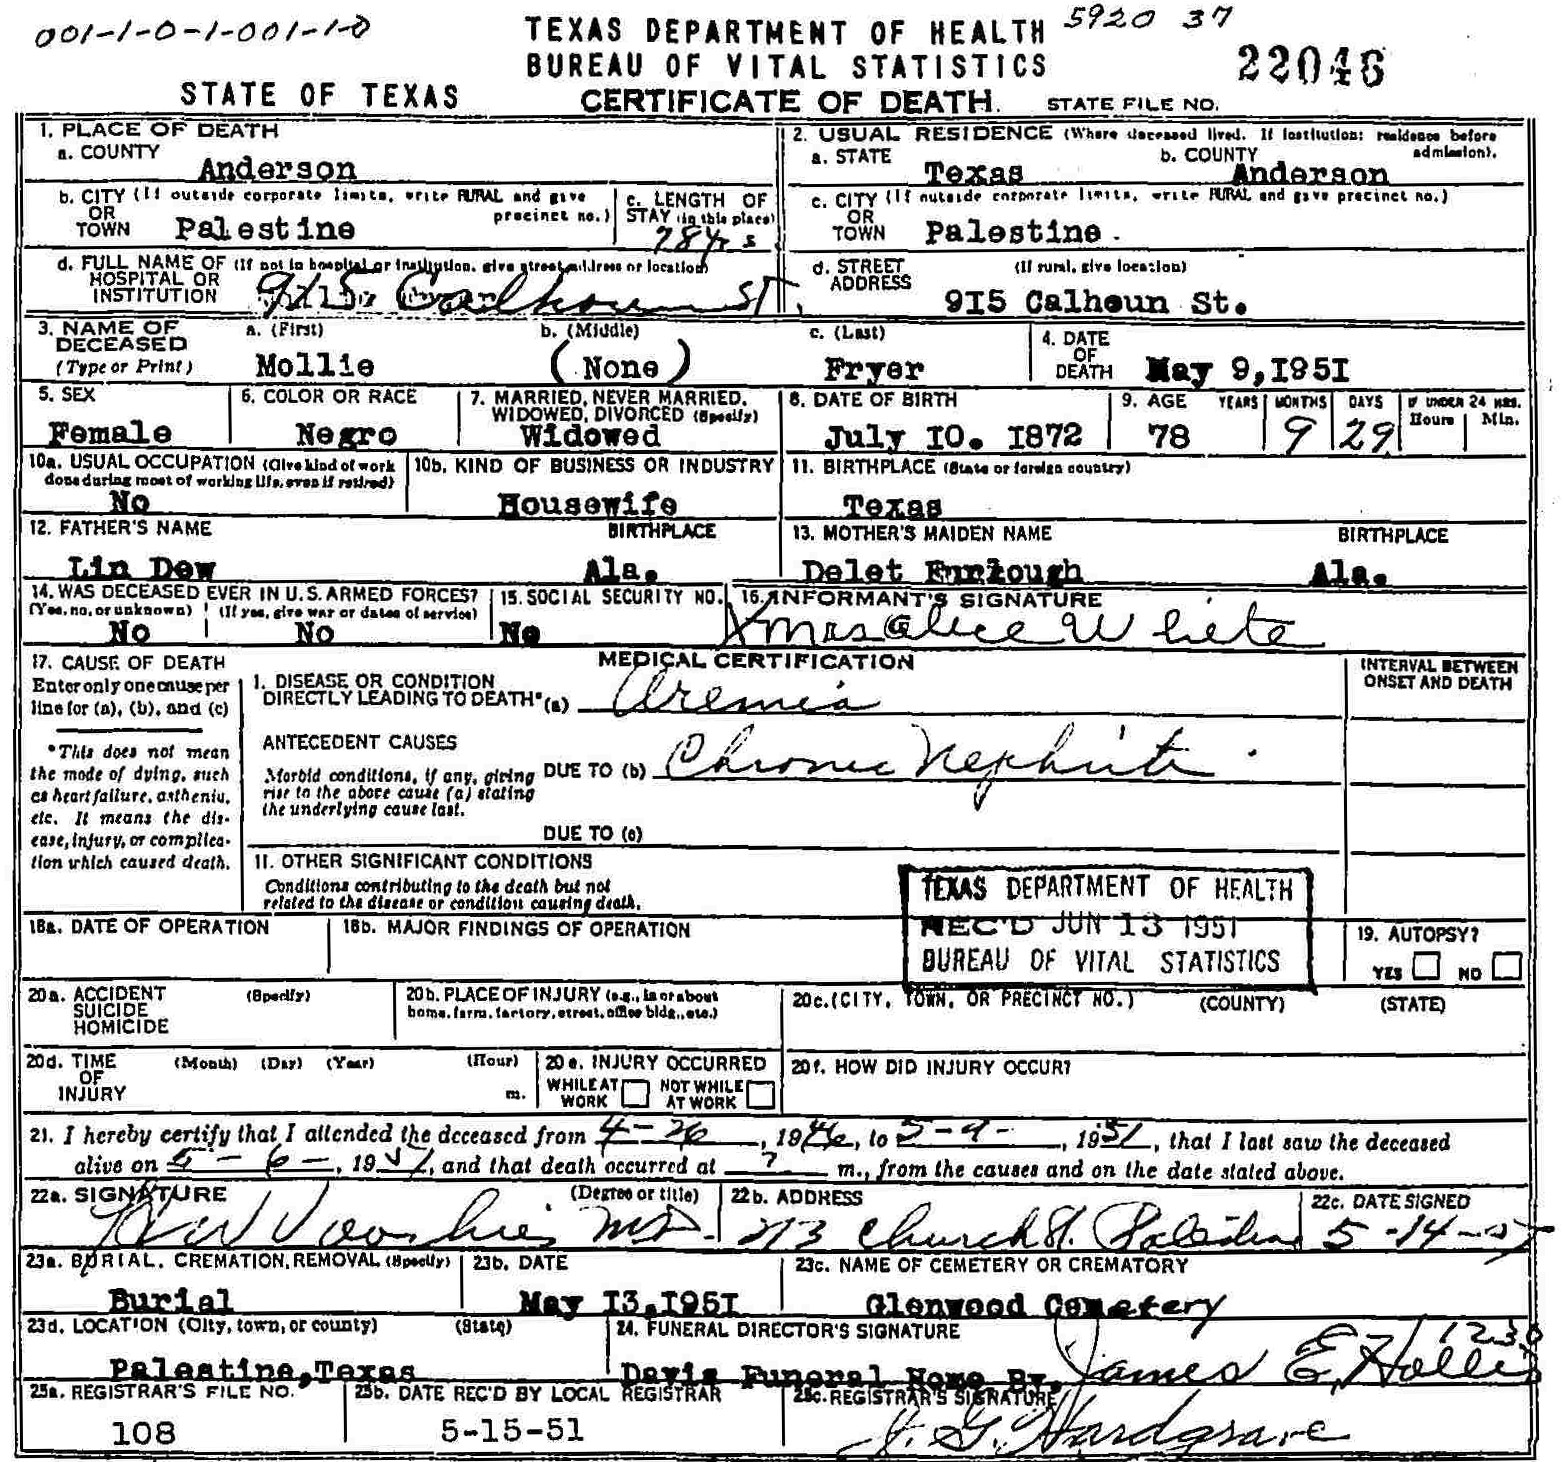 001-1-0-1-001-1-0
TEXAS DEPARTMENT OF HEALTH 5920 37
BUREAU OF VITAL STATISTICS 22046
STATE OF TEXAS CERTIFICATE OF DEATH. STATE FILE NO.
1. PLACE OF DEATH 2. USUAL RESIDENCE (Where deceased lived. If institution: residence before admission).
a. COUNTY Anderson a. STATE Texas b. COUNTY Anderson
b. CITY (If outside corporate limits, write RURAL and give precinct no.) c. LENGTH OF c. CITY (If outside corporate limits, write RURAL and give precinct no.)
OR STAY (in this place) OR
TOWN Palestine 78 Yrs TOWN Palestine.
d. FULL NAME OF (If not in hospital or institution, give street address or location) d. STREET (If rural, give location)
HOSPITAL OR ADDRESS
INSTITUTION 915 Calhoun ST. 915 Calhoun St.
3. NAME OF a. (First) b. (Middle) c. (Last) 4. DATE
DECEASED OF
(Type or Print) Mollie (None) Fryer DEATH May 9,1951
5. SEX 6. COLOR OR RACE 7. MARRIED, NEVER MARRIED, 8. DATE OF BIRTH 9. AGE YEARS MONTHS DAYS IF UNDER 24 HRS.
WIDOWED, DIVORCED (Specify) Hours Min.
Female Negro Widowed July 10. 1872 78 9 29
10a. USUAL OCCUPATION (Give kind of work 10b. KIND OF BUSINESS OR INDUSTRY 11. BIRTHPLACE (State or foreign country)
done during most of working life, even if retired)
No Housewife Texas
12. FATHER'S NAME BIRTHPLACE 13. MOTHER'S MAIDEN NAME BIRTHPLACE
Lin Dew Ala. Delet Furlough Ala.
14. WAS DECEASED EVER IN U.S. ARMED FORCES? 15. SOCIAL SECURITY NO. 16. INFORMANT'S SIGNATURE
(Yes, no, or unknown) (If yes, give war or dates of service)
No No No X Mrs Alice White
17. CAUSE OF DEATH MEDICAL CERTIFICATION INTERVAL BETWEEN
Enter only one cause per 1. DISEASE OR CONDITION ONSET AND DEATH
line for (a), (b), and (c) DIRECTLY LEADING TO DEATH* (a) Uremia
*This does not mean ANTECEDENT CAUSES
the mode of dying, such Morbid conditions, if any, giving DUE TO (b) Chronic Nephritis
as heart failure, asthenia, rise to the above cause (a) stating
etc. It means the dis- the underlying cause last.
ease, injury, or complica- DUE TO (c)
tion which caused death. 11. OTHER SIGNIFICANT CONDITIONS
Conditions contributing to the death but not
related to the disease or condition causing death.
TEXAS DEPARTMENT OF HEALTH
REC'D JUN 13 1951
BUREAU OF VITAL STATISTICS
18a. DATE OF OPERATION 18b. MAJOR FINDINGS OF OPERATION 19. AUTOPSY?
YES NO
20a. ACCIDENT (Specify) 20b. PLACE OF INJURY (e.g., in or about 20c. (CITY, TOWN, OR PRECINCT NO.) (COUNTY) (STATE)
SUICIDE home, farm, factory, street, office bldg., etc.)
HOMICIDE
20d. TIME (Month) (Day) (Year) (Hour) 20e. INJURY OCCURRED 20f. HOW DID INJURY OCCUR?
OF WHILE AT NOT WHILE
INJURY m. WORK AT WORK
21. I hereby certify that I attended the deceased from 4-26, 1946, to 5-9-, 1951, that I last saw the deceased
alive on 5-6-, 1951, and that death occurred at ? m., from the causes and on the date stated above.
22a. SIGNATURE (Degree or title) 22b. ADDRESS 22c. DATE SIGNED
Voorhies MD. 213 Church St. Palestine 5-14-51
23a. BURIAL, CREMATION, REMOVAL (Specify) 23b. DATE 23c. NAME OF CEMETERY OR CREMATORY
Burial May 13,1951 Glenwood Cemetery
23d. LOCATION (City, town, or county) (State) 24. FUNERAL DIRECTOR'S SIGNATURE 1230
Palestine,Texas Davis Funeral Home By, James E. Hollis
25a. REGISTRAR'S FILE NO. 25b. DATE REC'D BY LOCAL REGISTRAR 25c. REGISTRAR'S SIGNATURE
108 5-15-51 J. G. Hardgrave